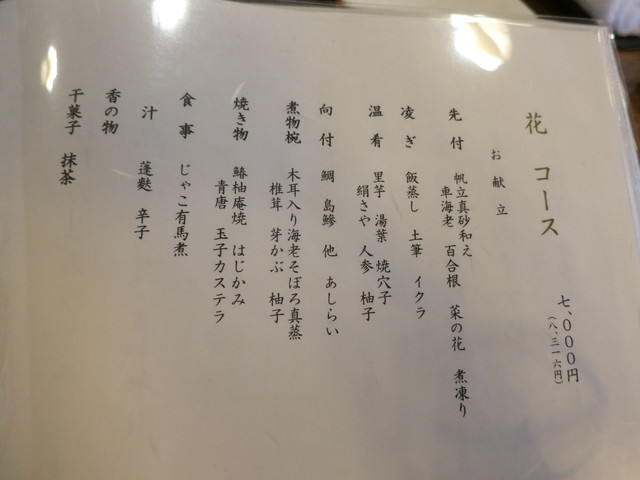 花 コース
七、〇〇〇円
(八、三一六円)
お献立
先付 帆立真砂和え
車海老 百合根 菜の花 煮凍り
凌ぎ 飯蒸し 土筆 イクラ
温肴 里芋 湯葉 焼穴子
絹さや 人参 柚子
向付 鯛 島鯵 他 あしらい
煮物椀 木耳入り海老そぼろ真蒸
椎茸 芽かぶ 柚子
焼き物 鰆柚庵焼 はじかみ
青唐 玉子カステラ
食事 じゃこ有馬煮
汁 蓬麩 辛子
香の物
干菓子 抹茶